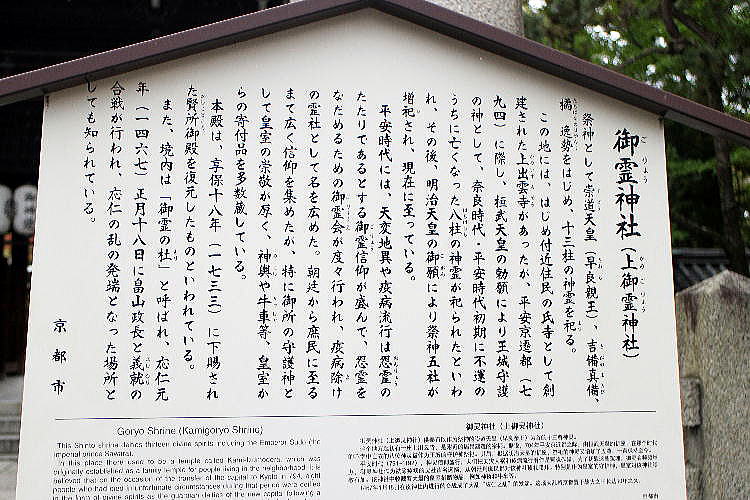 御霊神社（上御霊神社）
祭神として崇道天皇（早良親王）、吉備真備、
橘逸勢をはじめ、十三柱の神霊を祀る。
この地には、はじめ付近住民の氏寺として創
建された上出雲寺があったが、平安京遷都（七
九四）に際し、桓武天皇の勅願により王城守護
の神として、奈良時代・平安時代初期に不運の
うちに亡くなった八柱の神霊が祀られたといわ
れ、その後、明治天皇の御願により祭神五社が
増祀され、現在に至っている。
平安時代には、天変地異や疫病流行は怨霊の
たたりであるとする御霊信仰が盛んで、怨霊を
なだめるための御霊会が度々行われ、疫病除け
の霊社として名を広めた。朝廷から庶民に至る
まで広く信仰を集めたが、特に御所の守護神と
して皇室の崇敬が厚く、神輿や牛車等、皇室か
らの寄付品を多数蔵している。
本殿は、享保十八年（一七三三）に下賜され
た賢所御殿を復元したものといわれている。
また、境内は「御霊の杜」と呼ばれ、応仁元
年（一四六七）正月十八日に畠山政長と義就の
合戦が行われ、応仁の乱の発端となった場所と
しても知られている。
京都市
Goryo Shrine (Kamigoryo Shrine)
This Shinto shrine deifies thirteen divine spirits including the Emperor Sudo (the
imperial prince Sawara).
In this place there used to be a temple called Kami-Izumodera, which was
originally established as a family temple for people living in the neighborhood. It is
believed that on the occasion of the transfer of the capital to Kyoto in 794, eight
people who had died in unfortunate circumstances during that period were deified
in the form of divine spirits as the guardian deities of the new capital following a
御灵神社（上御灵神社）